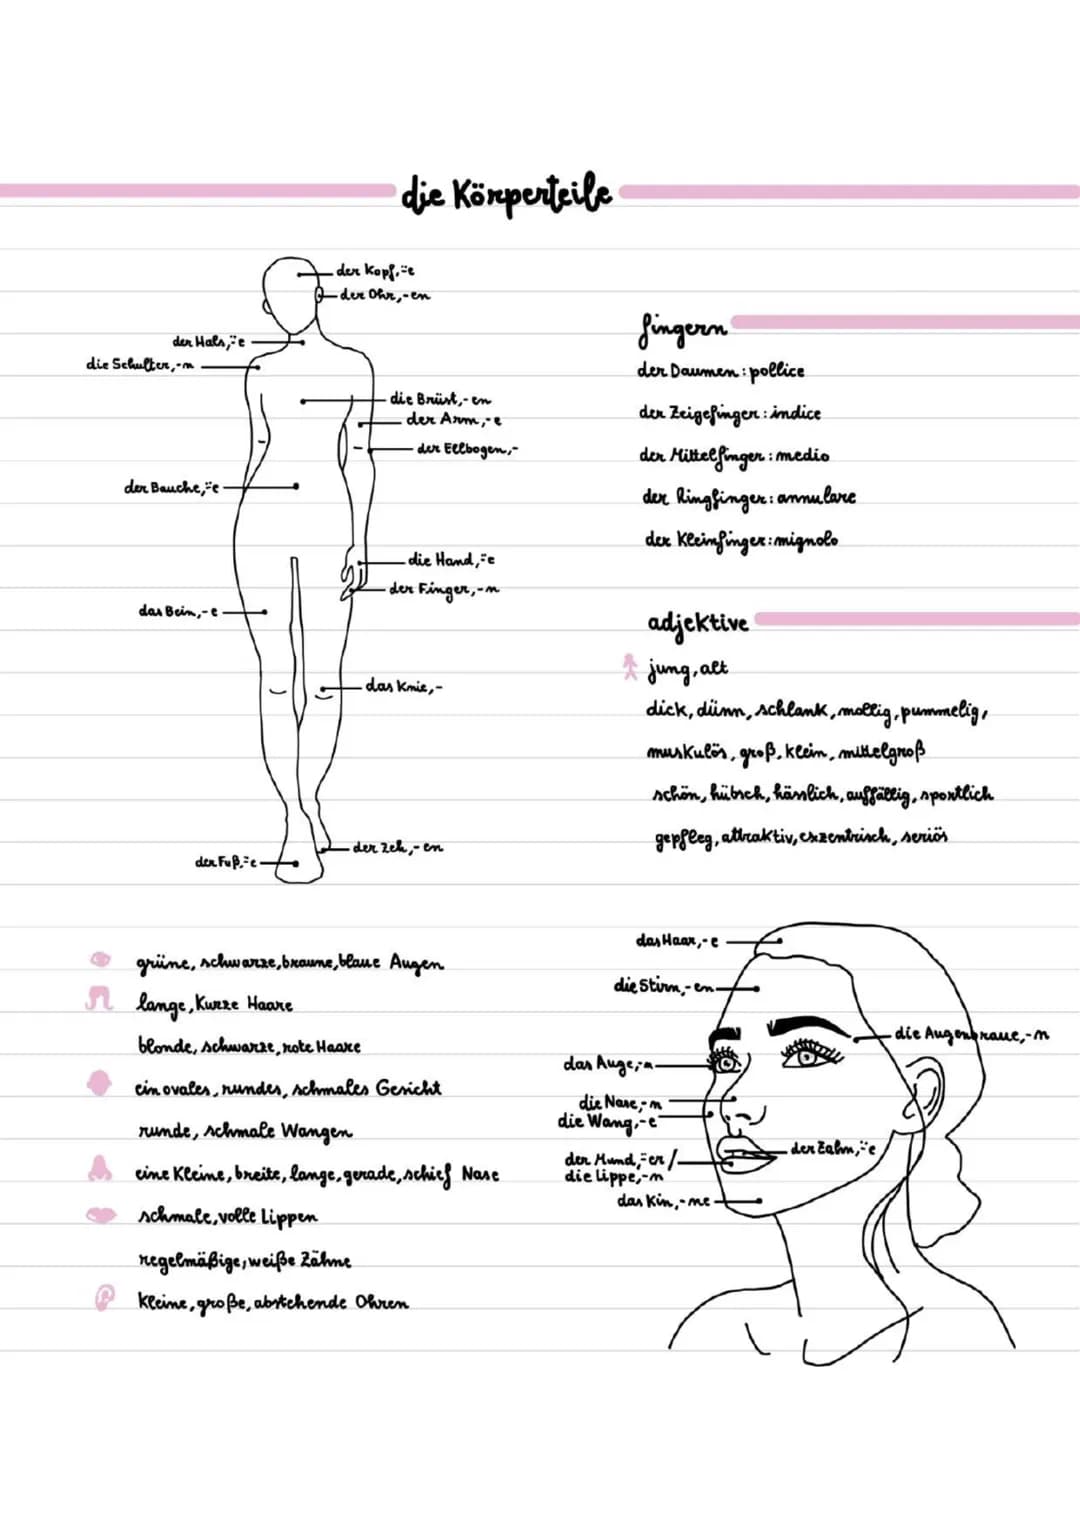 die Körperteile
der Kopf,¨e
der Ohr,-en
der Hals,¨e
die Schulter,-n
die Brüst,-en
der Arm,-e
der Ellbogen,-
der Bauche,¨e
die Hand,¨e
der Finger,-n
das Bein,-e
das Knie,-
der Zeh,-en
der Fuß,¨e
fingern
der Daumen: pollice
der Zeigefinger: indice
der Mittelfinger: medio
der Ringfinger: annulare
der Kleinfinger: mignolo
adjektive
jung, alt
dick, dünn, schlank, mollig, pummelig,
muskulös, groß, klein, mittelgroß
schön, hübsch, hässlich, auffällig, sportlich
gepfleg, attraktiv, exzentrisch, seriös
grüne, schwarze, braune, blaue Augen
lange, kurze Haare
blonde, schwarze, rote Haare
ein ovales, rundes, schmales Gesicht
runde, schmale Wangen
eine kleine, breite, lange, gerade, schief Nase
schmale, volle Lippen
regelmäßige, weiße Zähne
kleine, große, abstehende Ohren
das Haar,-e
die Stirn,-en
die Augenbraue,-n
das Auge,-n
die Nase,-n
die Wang,-e
der Zahn,¨e
der Mund,¨er /
die Lippe,-n
das Kin,-ne